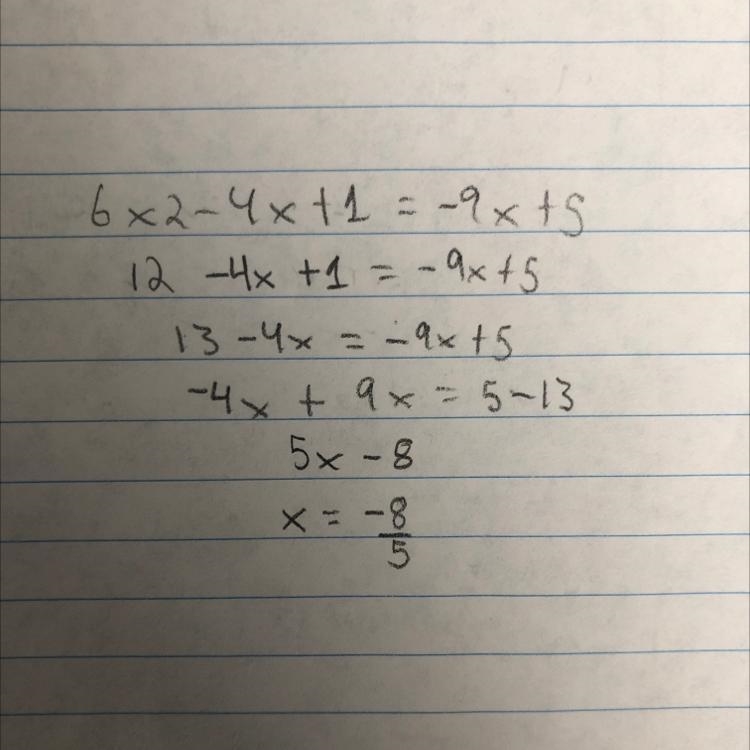 6x2-4x+1 = -9x+5
12 -4x +1 = -9x+5
13-4x = -9x+5
-4x + 9x = 5-13
5x - 8
x = -8/5